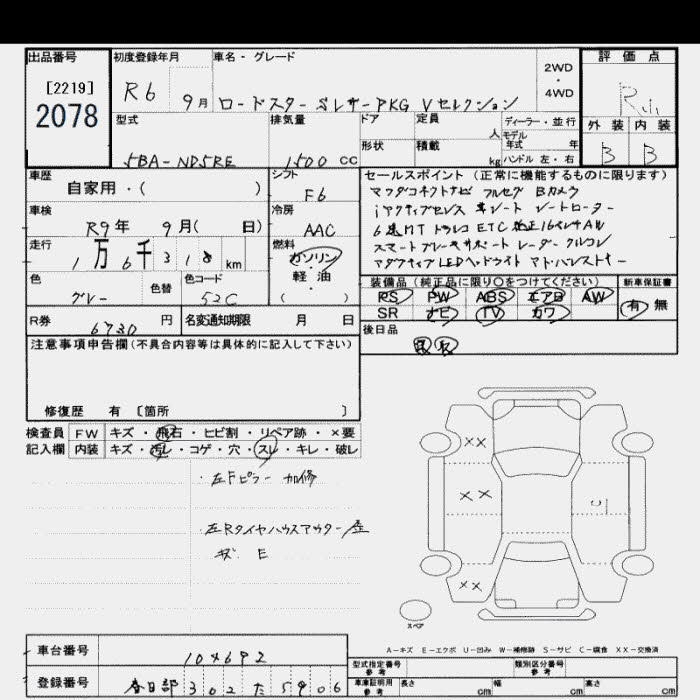 出品番号
[2219]
2078
初度登録年月
R6 9月
車名・グレード
ロードスター SレザーPKG Vセレクション
2WD
・
4WD
評価点
外装 内装
B B
型式
5BA-ND5RE
排気量
1500 CC
ドア
形状
定員
人
積載
kg
ディーラー・並行
モデル
年式 年
ハンドル 左・右
車歴
自家用・( )
シフト
F6
車検
R9年 9月( 日)
冷房
AAC
走行
1万6千318km
燃料
ガソリン
軽・油
( )
色
グレー
色替
色コード
52C
R券
6730円
名変通知期限 月 日
セールスポイント(正常に機能するものに限ります)
マツダコネクトナビ フルセグ Bカメラ
iアクティブセンス 革シート シートヒーター
6速MT ドラレコ ETC 純正16インチAW
スマートブレーキサポート レーダークルコン
アダプティブLEDヘッドライト アドバンストキー
装備品(純正品に限り○をつけてください)
PS PW ABS エアB AW
SR ナビ TV カワ
新車保証書
有 無
後日品
注意事項申告欄(不具合内容等は具体的に記入して下さい)
修復歴 有 〔箇所 〕
検査員 FW キズ・飛石・ヒビ割・リペア跡・×要
記入欄 内装 キズ・汚レ・コゲ・穴・スレ・キレ・破レ
・左Fピラー 加修
・左Rタイヤハウスアウター
E
××
××
C
××
スペア
A-キズ E-エクボ U-凹み W-補修跡 S-サビ C-腐食 XX-交換済
車台番号
104692
登録番号
春日部 302 た 5906
型式指定番号
参考
類別区分番号
参考
車庫証明用
参考
長さ cm
幅 cm
高さ cm